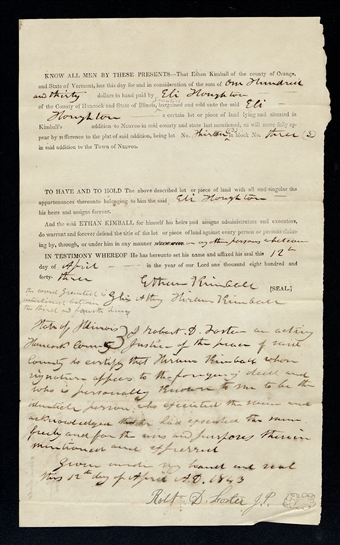 KNOW ALL MEN BY THESE PRESENTS—That Ethan Kimball of the county of Orange,
and State of Vermont, has this day for and in consideration of the sum of One Hundred
and thirty dollars in hand paid by Eli Houghton
of the County of Hancock and State of Illinois, bargained and sold unto the said Eli
Houghton a certain lot or piece of land lying and situated in
Kimball's addition to Nauvoo in said county and state last mentioned, as will more fully ap-
pear by reference to the plat of said addition, being lot No. block No. three 3
in said addition to the Town of Nauvoo.
TO HAVE AND TO HOLD The above described lot or piece of land with all and singular the
appurtenances thereunto belonging to him the said Eli Houghton
his heirs and assigns forever.
And the said ETHAN KIMBALL for himself his heirs and assigns administrators and executors,
do warrant and forever defend the title of the lot or parcel against every person or persons claim-
ing by, through, or under him in any manner or any other persons whatever
IN TESTIMONY WHEREOF He has hereunto set his name and affixed his seal this 12th
day of April in the year of our Lord one thousand eight hundred and
forty three
Ethan Kimball [SEAL.]
By his Atty Hiram Kimball
the third and fourth lines
State of Illinois
Hancock County
I Robert D. Foster an acting
Justice of the peace of said
County do certify that Hiram Kimball whose
signature appears to the foregoing deed and
who is personally known to me to be the
identical person who executed the same and
acknowledged that he had executed the same
freely and for the uses and purposes therein
mentioned and
Given under my hand and seal
this 12th day of April A.D. 1843
Robt D. Foster J.P.